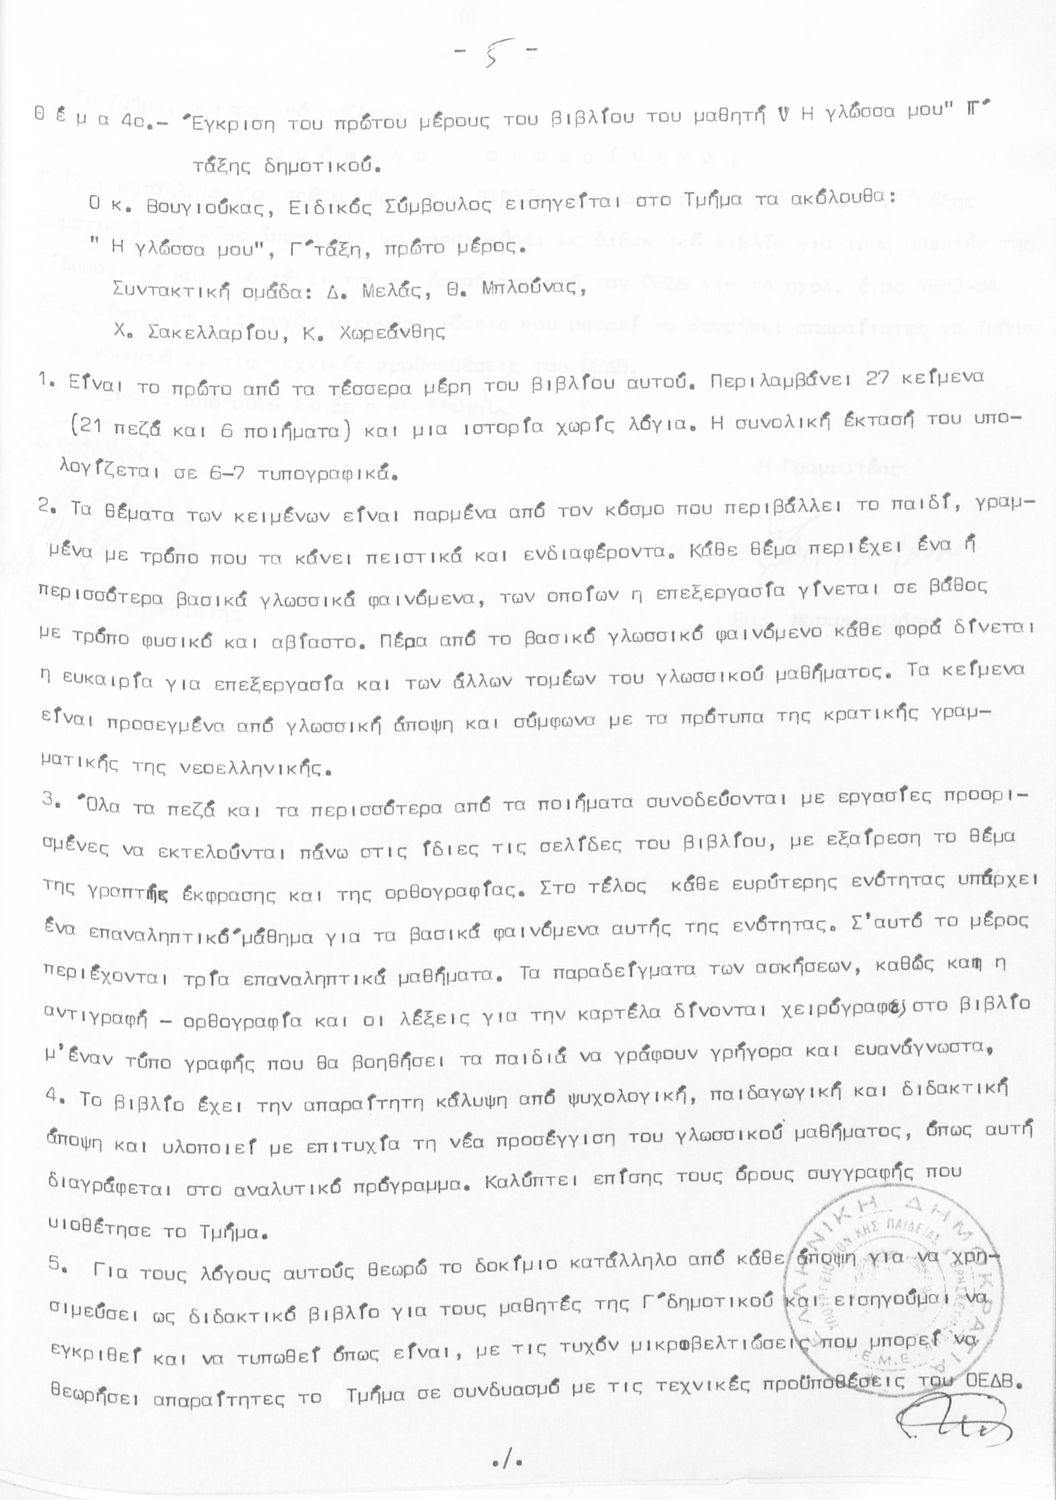 - 5 -
Θ έ μ α 4ο.- Έγκριση του πρώτου μέρους του βιβλίου του μαθητή " Η γλώσσα μου" Γ΄
τάξης δημοτικού.
Ο κ. Βουγιούκας, Ειδικός Σύμβουλος εισηγείται στο Τμήμα τα ακόλουθα:
" Η γλώσσα μου", Γ΄τάξη, πρώτο μέρος.
Συντακτική ομάδα: Δ. Μελάς, Θ. Μπλούνας,
Χ. Σακελλαρίου, Κ. Χωρεάνθης
1. Είναι το πρώτο από τα τέσσερα μέρη του βιβλίου αυτού. Περιλαμβάνει 27 κείμενα
(21 πεζά και 6 ποιήματα) και μια ιστορία χωρίς λόγια. Η συνολική έκτασή του υπο-
λογίζεται σε 6-7 τυπογραφικά.
2. Τα θέματα των κειμένων είναι παρμένα από τον κόσμο που περιβάλλει το παιδί, γραμ-
μένα με τρόπο που τα κάνει πειστικά και ενδιαφέροντα. Κάθε θέμα περιέχει ένα ή
περισσότερα βασικά γλωσσικά φαινόμενα, των οποίων η επεξεργασία γίνεται σε βάθος
με τρόπο φυσικό και αβίαστο. Πέρα από το βασικό γλωσσικό φαινόμενο κάθε φορά δίνεται
η ευκαιρία για επεξεργασία και των άλλων τομέων του γλωσσικού μαθήματος. Τα κείμενα
είναι προσεγμένα από γλωσσική άποψη και σύμφωνα με τα πρότυπα της κρατικής γραμ-
ματικής της νεοελληνικής.
3. Όλα τα πεζά και τα περισσότερα από τα ποιήματα συνοδεύονται με εργασίες προορι-
σμένες να εκτελούνται πάνω στις ίδιες τις σελίδες του βιβλίου, με εξαίρεση το θέμα
της γραπτής έκφρασης και της ορθογραφίας. Στο τέλος κάθε ευρύτερης ενότητας υπάρχει
ένα επαναληπτικό μάθημα για τα βασικά φαινόμενα αυτής της ενότητας. Σ'αυτό το μέρος
περιέχονται τρία επαναληπτικά μαθήματα. Τα παραδείγματα των ασκήσεων, καθώς και η
αντιγραφή - ορθογραφία και οι λέξεις για την καρτέλα δίνονται χειρόγραφες στο βιβλίο
μ'έναν τύπο γραφής που θα βοηθήσει τα παιδιά να γράφουν γρήγορα και ευανάγνωστα,
4. Το βιβλίο έχει την απαραίτητη κάλυψη από ψυχολογική, παιδαγωγική και διδακτική
άποψη και υλοποιεί με επιτυχία τη νέα προσέγγιση του γλωσσικού μαθήματος, όπως αυτή
διαγράφεται στο αναλυτικό πρόγραμμα. Καλύπτει επίσης τους όρους συγγραφής που
υιοθέτησε το Τμήμα.
5. Για τους λόγους αυτούς θεωρώ το δοκίμιο κατάλληλο από κάθε άποψη για να χρη-
σιμεύσει ως διδακτικό βιβλίο για τους μαθητές της Γ΄δημοτικού και εισηγούμαι να
εγκριθεί και να τυπωθεί όπως είναι, με τις τυχόν μικροβελτιώσεις που μπορεί να
θεωρήσει απαραίτητες το Τμήμα σε συνδυασμό με τις τεχνικές προϋποθέσεις του ΟΕΔΒ.
ΕΛΛΗΝΙΚΗ ΔΗΜΟΚΡΑΤΙΑ
Ε.Μ.Ε
./.